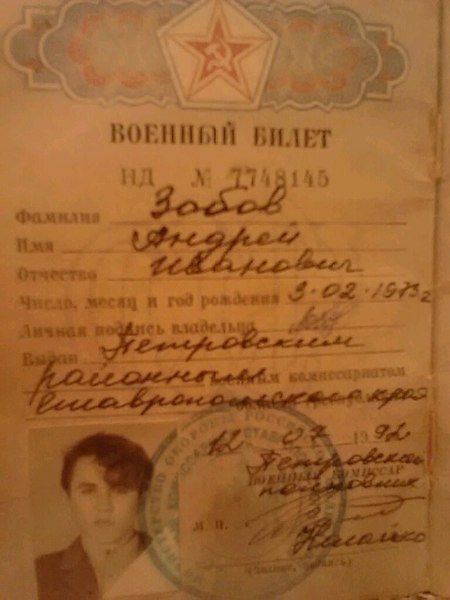 ВОЕННЫЙ БИЛЕТ
НД № 7748145
Фамилия Зобов
Имя Андрей
Отчество Иванович
Число, месяц и год рождения 3-02-1973г
Личная подпись владельца
Выдан Петровским
районным военным комиссариатом
Ставропольского края
12 07 1992
Петровский
ВОЕННЫЙ КОМИССАР
полковник
М. П.